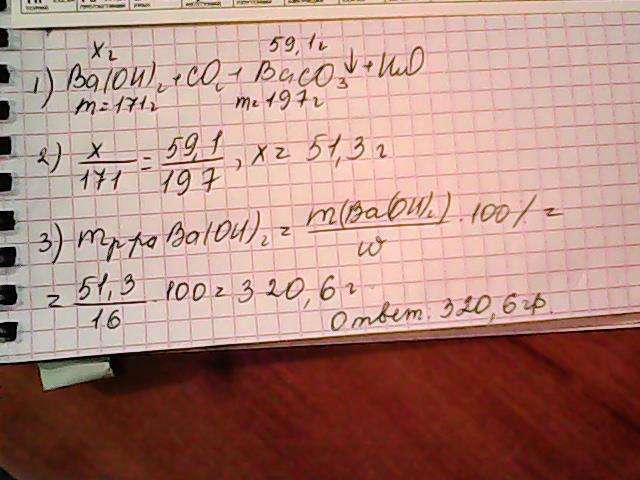 x г 59,1 г
1) Ba(OH)₂ + CO₂ + BaCO₃↓ + H₂O
m = 171 г m = 197 г
2) x/171 = 59,1/197, x = 51,3 г
3) m р-ра Ba(OH)₂ = m(Ba(OH)₂)/w · 100% =
= 51,3/16 · 100 = 320,6 г
Ответ: 320,6 гр.